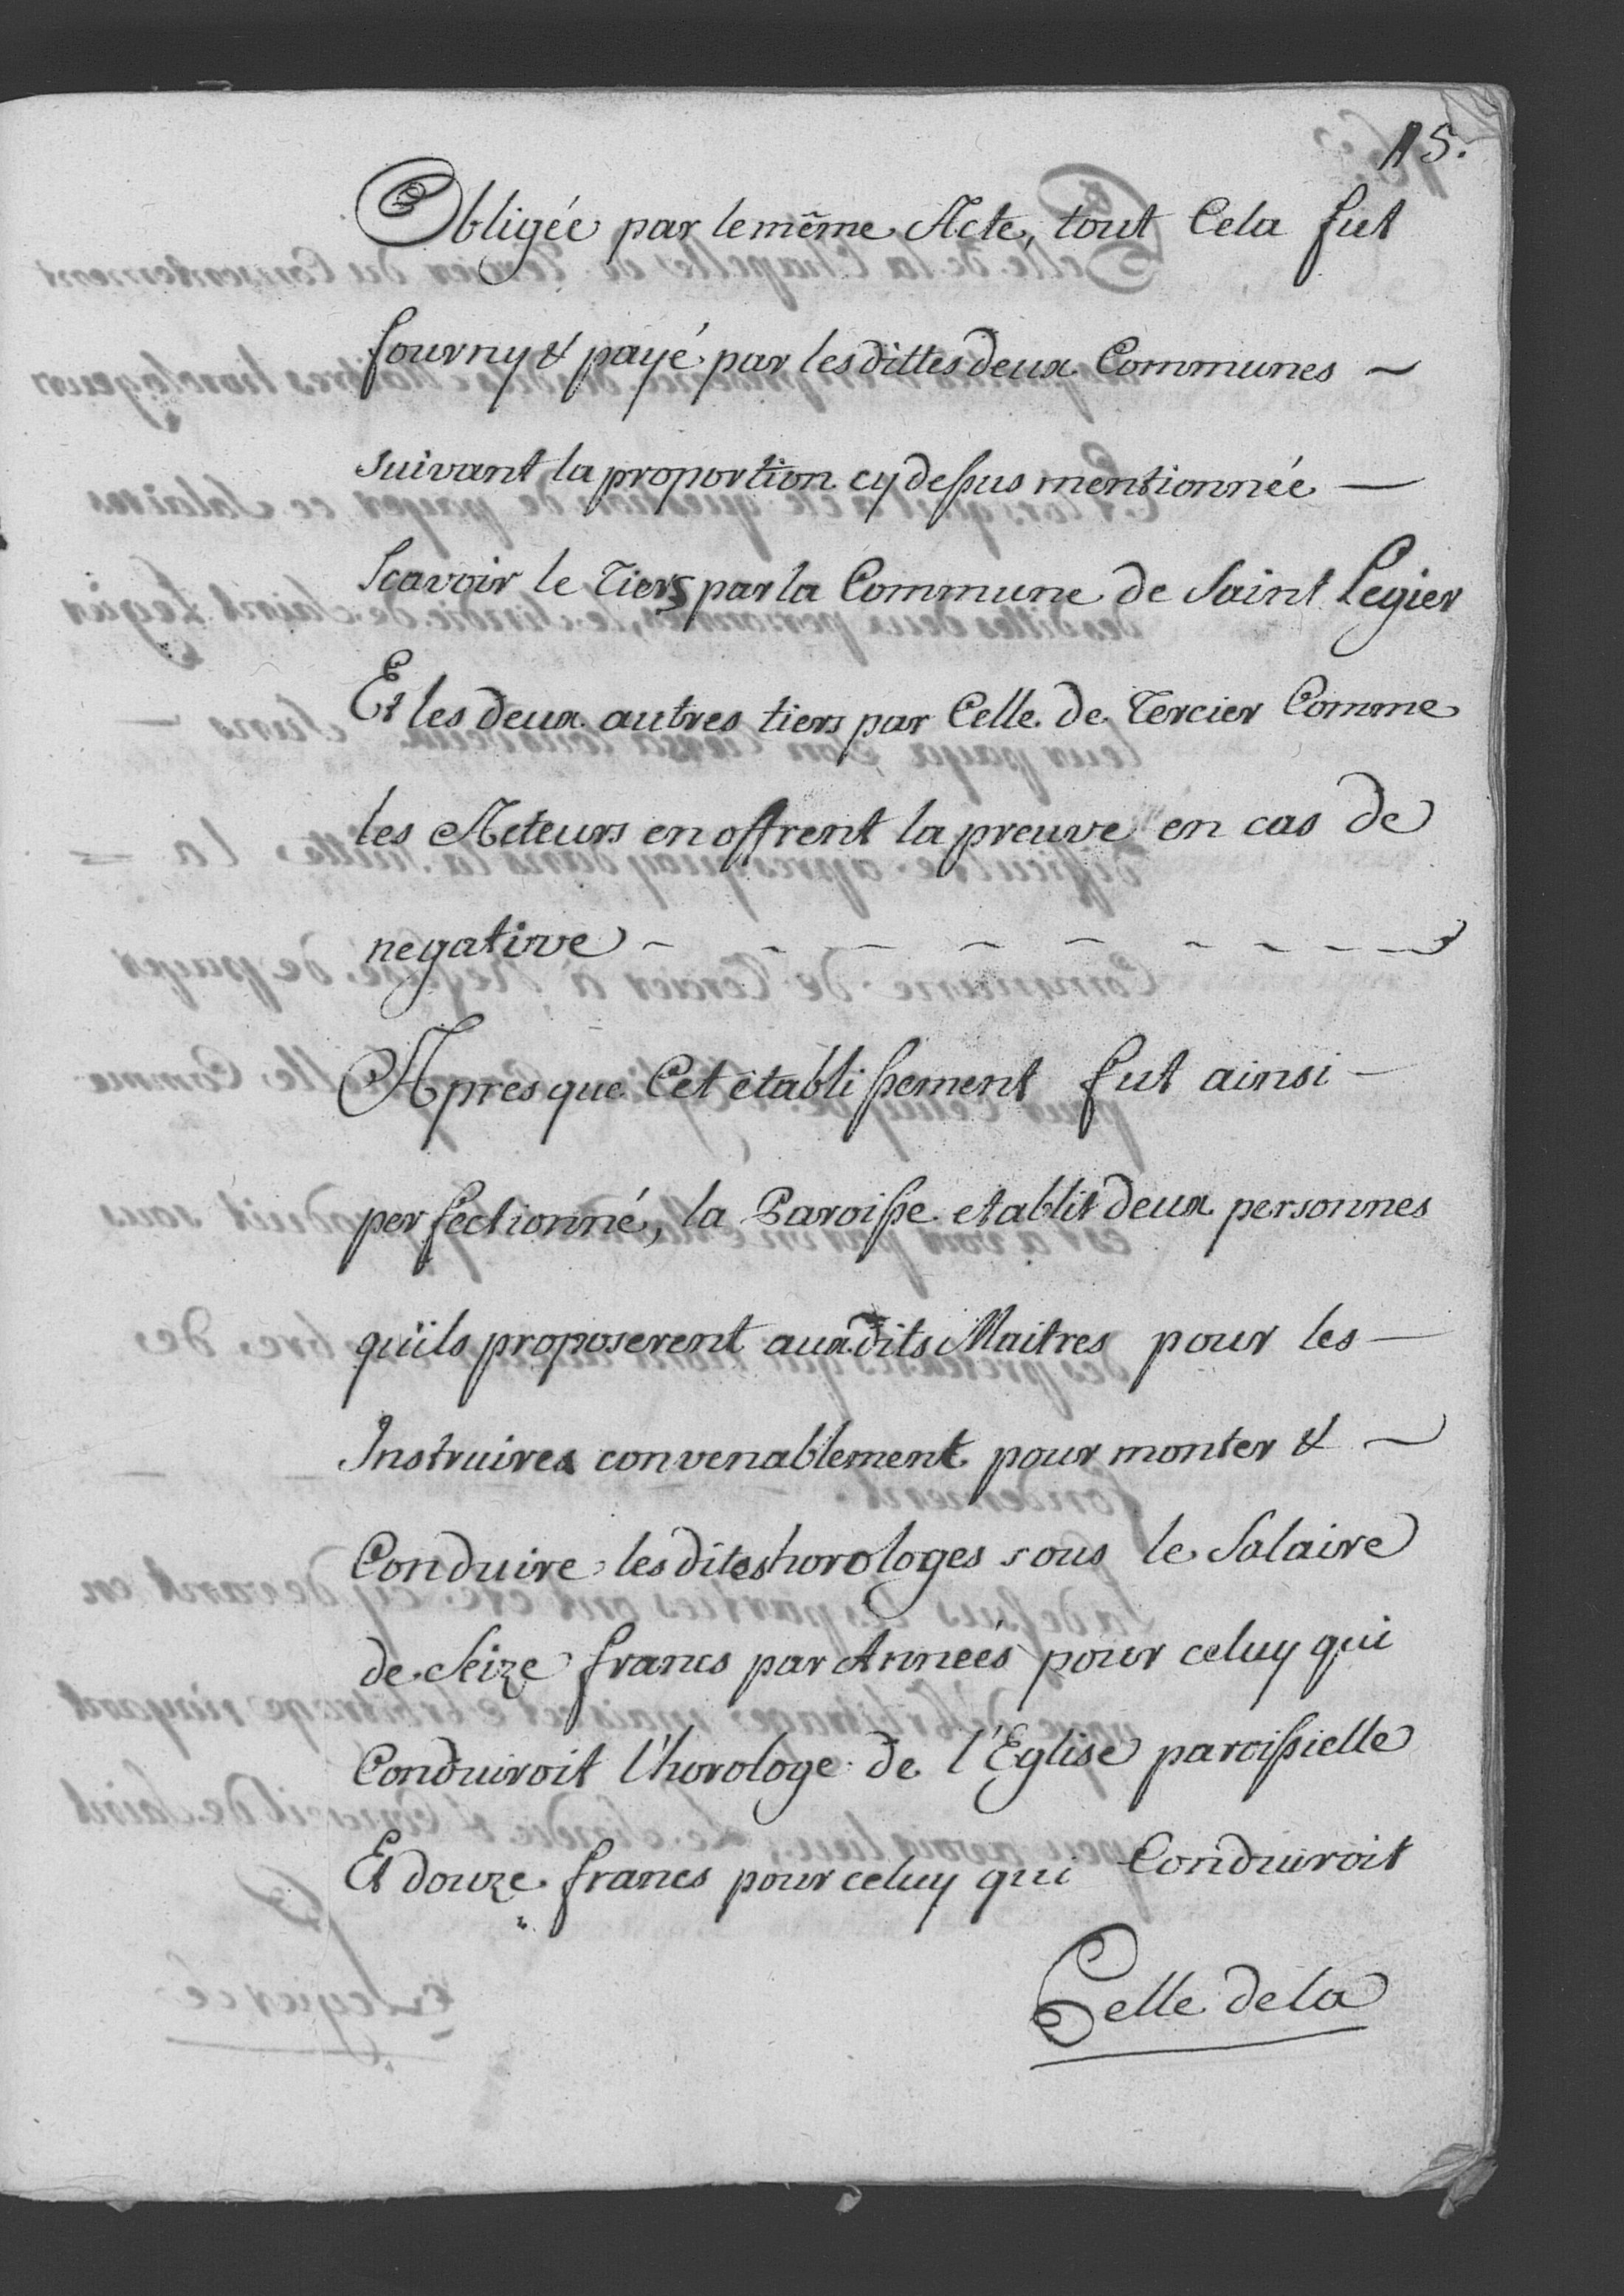 15.
Obligée par le même Acte, tout Cela fut
fourny & payé par les dittes deux Communes ~
suivant la proportion cy dessus mentionnée —
Scavoir le Tiers par la Commune de Saint Legier
Et les deux autres tiers par Celle de Tercier Comme
les Acteurs en offrent la preuve en cas de
negative - - - - - - - - - -
Apres que Cet êtablissement fut ainsi —
perfectionné, la Paroisse etablit deux personnes
qu'ils proposerent aux dits Maitres pour les —
Instruires convenablement pour monter & ~
Conduire les dites horologes sous le Salaire
de Seize francs par Années pour celuy qui
Conduiroit l'horologe de l'Eglise paroissielle
Et douze francs pour celuy qui Conduiroit
Celle de la